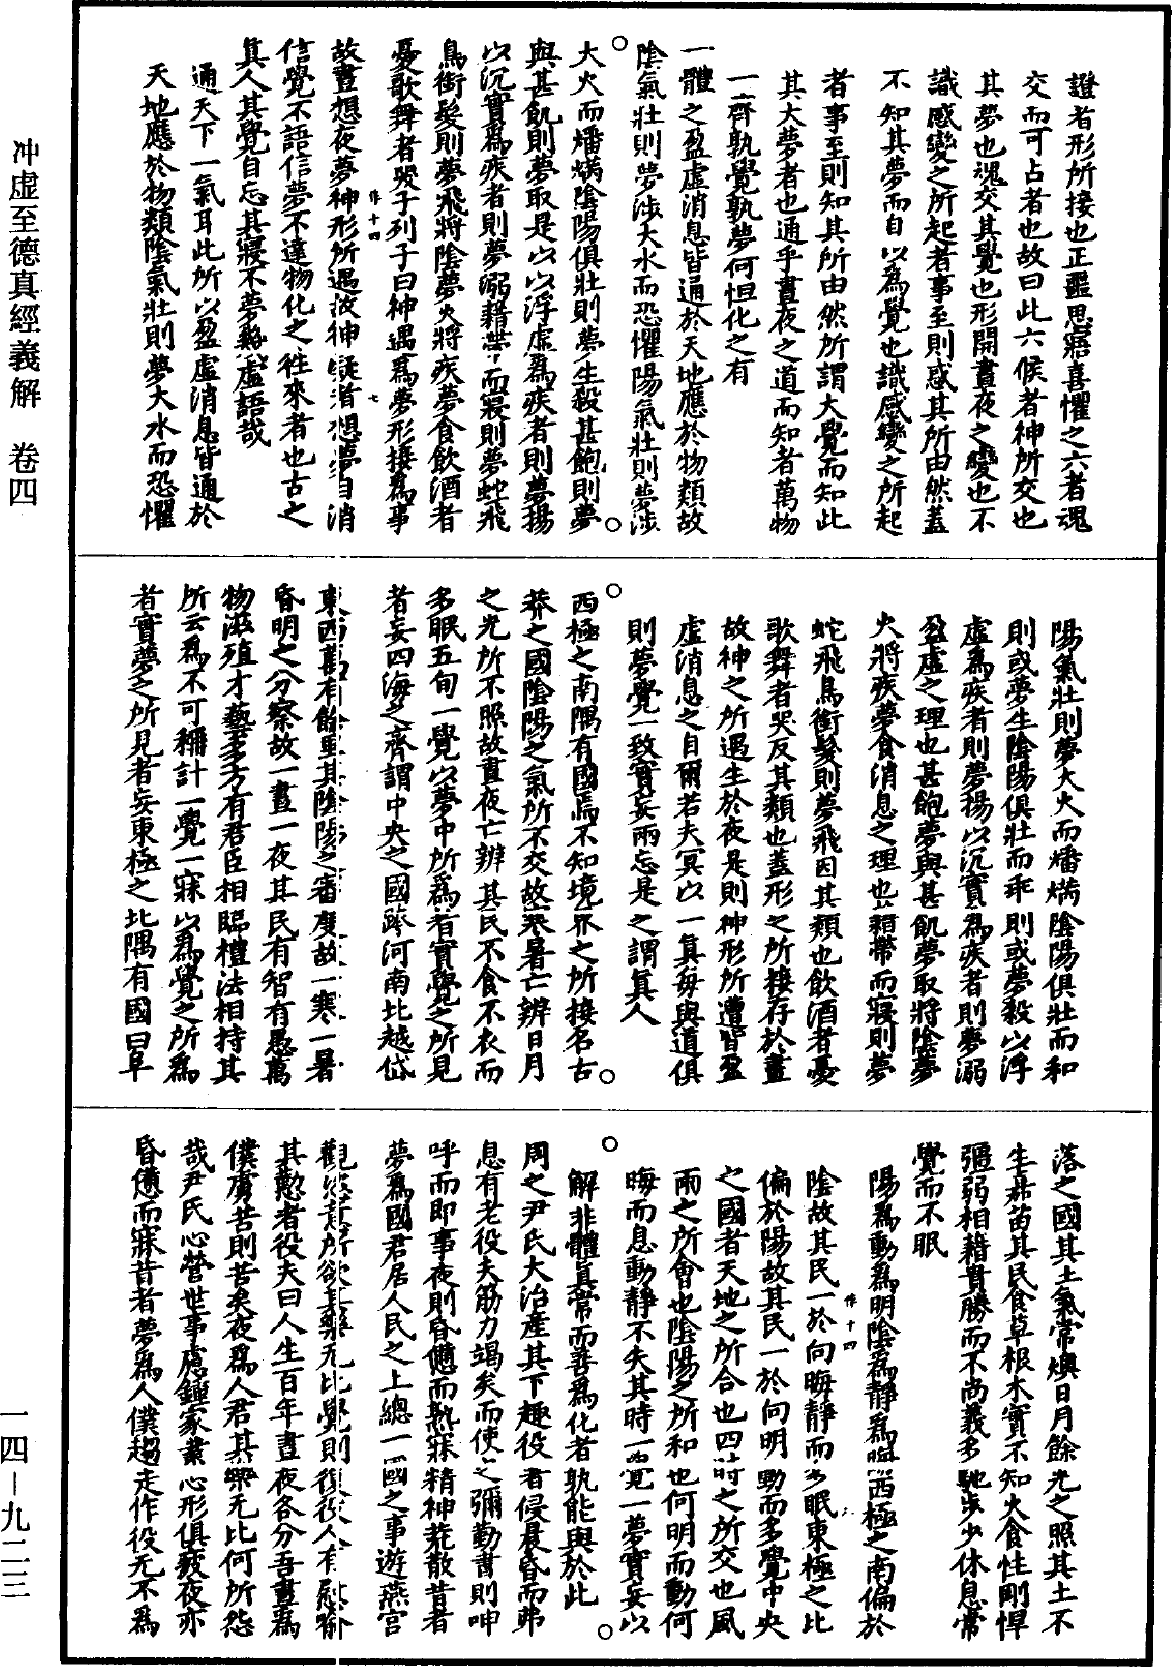 冲虛至德真經義解　卷四
證者形所接也正噩思寤喜懼之六者魂
交而可占者也故曰此六候者神所交也
其夢也魂交其覺也形開晝夜之變也不
識感變之所起者事至則惑其所由然蓋
不知其夢而自以為覺也識感變之所起
者事至則知其所由然所謂大覺而知此
其大夢者也通乎晝夜之道而知者萬物
一齊孰覺孰夢何怛化之有
一體之盈虛消息皆通於天地應於物類故
陰氣壯則夢涉大水而恐懼陽氣壯則夢涉
大火而燔焫陰陽俱壯則夢生殺甚飽則夢
與甚飢則夢取是以以浮虛為疾者則夢揚
以沉實為疾者則夢溺藉帶而寢則夢蛇飛
鳥銜髮則夢飛將陰夢火將疾夢食飲酒者
憂歌舞者哭子列子曰神遇為夢形接為事
作十四　七
故晝想夜夢神形所遇故神凝者想夢自消
信覺不語信夢不達物化之往來者也古之
真人其覺自忘其寢不夢幾虛語哉
通天下一氣耳此所以盈虛消息皆通於
天地應於物類陰氣壯則夢大水而恐懼
陽氣壯則夢大火而燔焫陰陽俱壯而和
則或夢生陰陽俱壯而乖則或夢殺以浮
虛為疾者則夢揚以沉實為疾者則夢溺
盈虛之理也甚飽夢與甚飢夢取將陰夢
火將疾夢食消息之理也藉帶而寢則夢
蛇飛鳥銜髮則夢飛因其類也飲酒者憂
歌舞者哭反其類也蓋形之所接存於晝
故神之所遇生於夜是則神形所遭皆盈
虛消息之自爾若夫冥以一真每與道俱
則夢覺一致實妄兩忘是之謂真人
西極之南隅有國焉不知境界之所接名古
莽之國陰陽之氣所不交故寒暑亡辨日月
之光所不照故晝夜亡辨其民不食不衣而
多眠五旬一覺以夢中所為者實覺之所見
者妄四海之齊謂中央之國跨河南北越岱
東西萬有餘里其陰陽之審度故一寒一暑
昏明之分察故一晝一夜其民有智有愚萬
物滋殖才藝多方有君臣相臨禮法相持其
所云為不可稱計一覺一寐以為覺之所為
者實夢之所見者妄東極之北隅有國曰阜
落之國其土氣常燠日月餘光之照其土不
生嘉苗其民食草根木實不知火食性剛悍
彊弱相藉貴勝而不尚義多馳步少休息常
覺而不眠
陽為動為明陰為靜為晦西極之南偏於
作十四
陰故其民一於向晦靜而多眠東極之北
偏於陽故其民一於向明動而多覺中央
之國者天地之所合也四時之所交也風
雨之所會也陰陽之所和也何明而動何
晦而息動靜不失其時一覺一夢實妄以
解非體真常而善為化者孰能與於此
周之尹氏大治產其下趣役者侵晨昏而弗
息有老役夫筋力竭矣而使之彌勤晝則呻
呼而即事夜則昏憊而熟寐精神荒散昔昔
夢為國君居人民之上總一國之事遊燕宮
觀恣意所欲其樂无比覺則復役人有慰喻
其懃者役夫曰人生百年晝夜各分吾晝為
僕虜苦則苦矣夜為人君其樂无比何所怨
哉尹氏心營世事慮鍾家業心形俱疲夜亦
昏憊而寐昔昔夢為人僕趨走作役无不為
一四－九二三